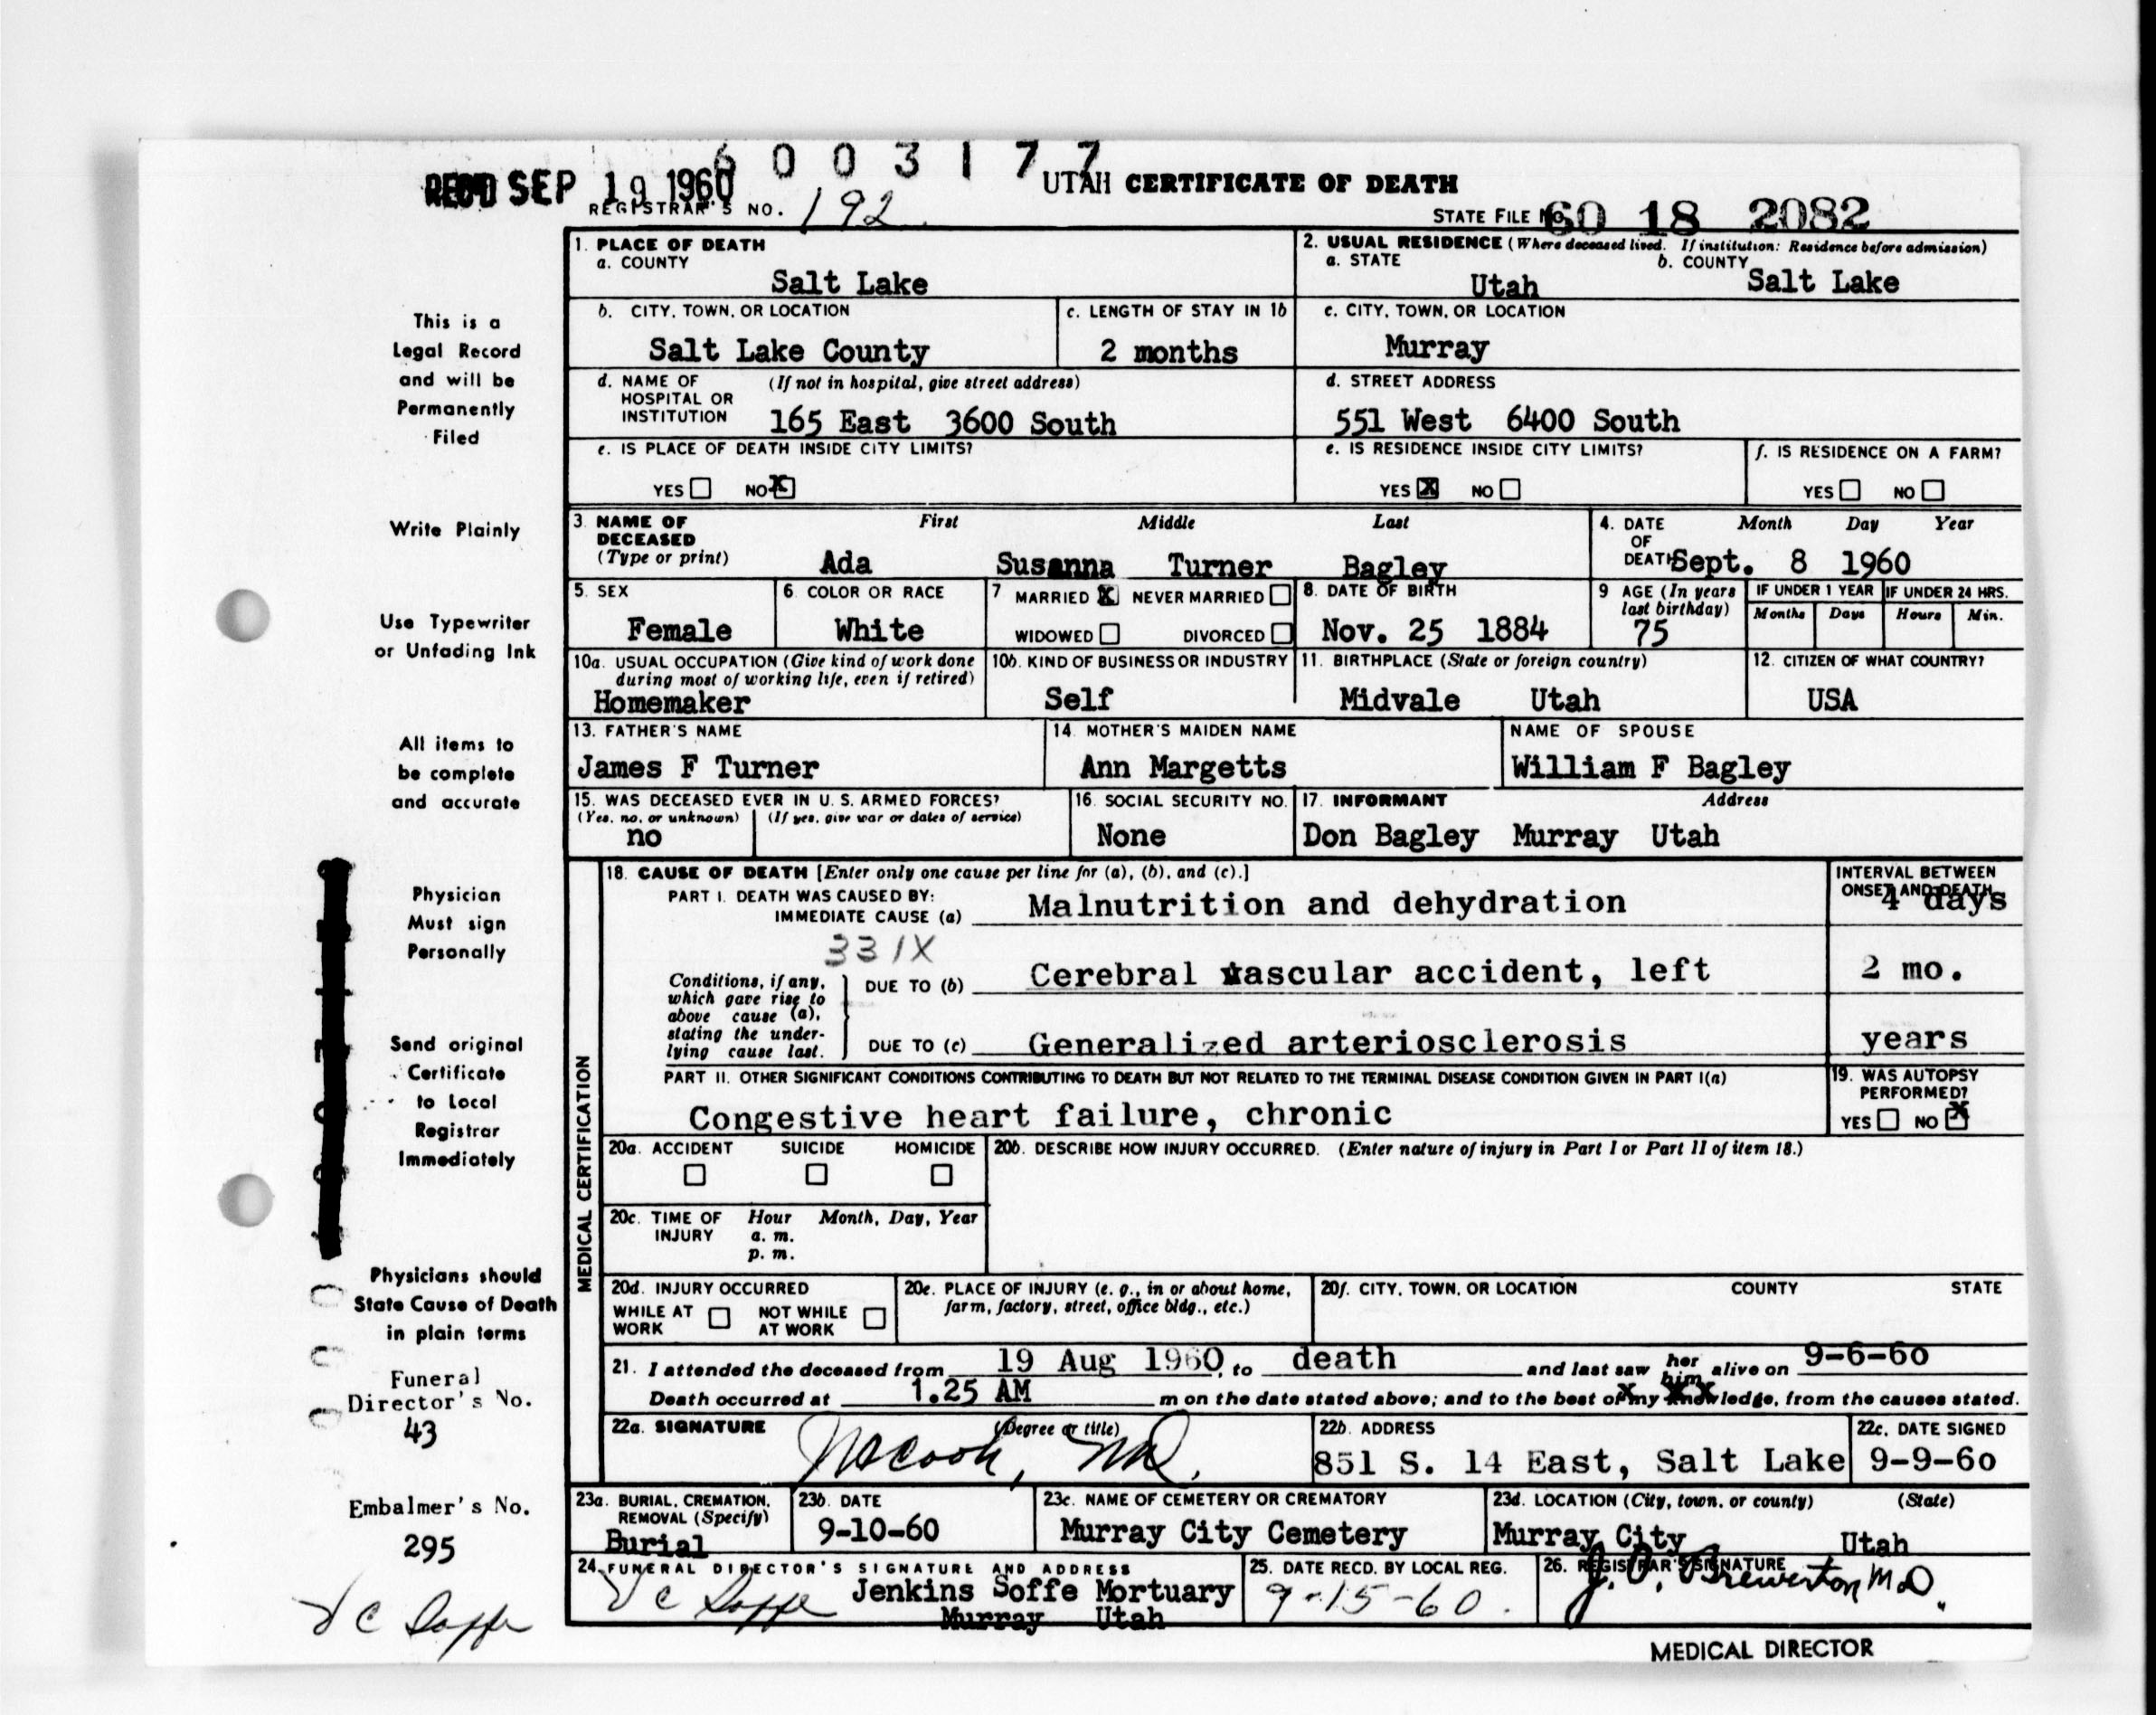 6003177
REC'D SEP 19 1960
UTAH CERTIFICATE OF DEATH
REGISTRAR'S NO. 192
STATE FILE No. 60 18 2082
This is a
Legal Record
and will be
Permanently
Filed
Write Plainly
Use Typewriter
or Unfading Ink
All items to
be complete
and accurate
Physician
Must sign
Personally
Send original
Certificate
to Local
Registrar
Immediately
Physicians should
State Cause of Death
in plain terms
Funeral
Director's No.
43
Embalmer's No.
295
1. PLACE OF DEATH
a. COUNTY
Salt Lake
2. USUAL RESIDENCE (Where deceased lived. If institution: Residence before admission)
a. STATE b. COUNTY
Utah Salt Lake
b. CITY, TOWN, OR LOCATION
Salt Lake County
c. LENGTH OF STAY IN 1b
2 months
c. CITY, TOWN, OR LOCATION
Murray
d. NAME OF (If not in hospital, give street address)
HOSPITAL OR
INSTITUTION 165 East 3600 South
d. STREET ADDRESS
551 West 6400 South
e. IS PLACE OF DEATH INSIDE CITY LIMITS?
YES NO X
e. IS RESIDENCE INSIDE CITY LIMITS?
YES X NO
f. IS RESIDENCE ON A FARM?
YES NO
3. NAME OF First Middle Last
DECEASED
(Type or print) Ada Susanna Turner Bagley
4. DATE Month Day Year
OF
DEATH Sept. 8 1960
5. SEX
Female
6. COLOR OR RACE
White
7 MARRIED X NEVER MARRIED
WIDOWED DIVORCED
8. DATE OF BIRTH
Nov. 25 1884
9 AGE (In years
last birthday)
75
IF UNDER 1 YEAR IF UNDER 24 HRS.
Months Days Hours Min.
10a. USUAL OCCUPATION (Give kind of work done
during most of working life, even if retired)
Homemaker
10b. KIND OF BUSINESS OR INDUSTRY
Self
11. BIRTHPLACE (State or foreign country)
Midvale Utah
12. CITIZEN OF WHAT COUNTRY?
USA
13. FATHER'S NAME
James F Turner
14. MOTHER'S MAIDEN NAME
Ann Margetts
NAME OF SPOUSE
William F Bagley
15. WAS DECEASED EVER IN U. S. ARMED FORCES?
(Yes, no, or unknown) (If yes, give war or dates of service)
no
16. SOCIAL SECURITY NO.
None
17. INFORMANT Address
Don Bagley Murray Utah
MEDICAL CERTIFICATION
18. CAUSE OF DEATH [Enter only one cause per line for (a), (b), and (c).]
PART I. DEATH WAS CAUSED BY:
IMMEDIATE CAUSE (a) Malnutrition and dehydration
INTERVAL BETWEEN
ONSET AND DEATH
4 days
331X
Conditions, if any,
which gave rise to
above cause (a),
stating the under-
lying cause last.
DUE TO (b) Cerebral vascular accident, left 2 mo.
DUE TO (c) Generalized arteriosclerosis years
PART II. OTHER SIGNIFICANT CONDITIONS CONTRIBUTING TO DEATH BUT NOT RELATED TO THE TERMINAL DISEASE CONDITION GIVEN IN PART I(a)
Congestive heart failure, chronic
19. WAS AUTOPSY
PERFORMED?
YES NO X
20a. ACCIDENT SUICIDE HOMICIDE
20b. DESCRIBE HOW INJURY OCCURRED. (Enter nature of injury in Part I or Part II of item 18.)
20c. TIME OF Hour Month, Day, Year
INJURY a. m.
p. m.
20d. INJURY OCCURRED
WHILE AT NOT WHILE
WORK AT WORK
20e. PLACE OF INJURY (e. g., in or about home,
farm, factory, street, office bldg., etc.)
20f. CITY, TOWN, OR LOCATION COUNTY STATE
21. I attended the deceased from 19 Aug 1960, to death and last saw her him alive on 9-6-60
Death occurred at 1.25 AM m on the date stated above; and to the best of my knowledge, from the causes stated.
22a. SIGNATURE (Degree or title)
Cook, MD.
22b. ADDRESS
851 S. 14 East, Salt Lake
22c. DATE SIGNED
9-9-60
23a. BURIAL, CREMATION,
REMOVAL (Specify)
Burial
23b. DATE
9-10-60
23c. NAME OF CEMETERY OR CREMATORY
Murray City Cemetery
23d. LOCATION (City, town, or county) (State)
Murray City Utah
24. FUNERAL DIRECTOR'S SIGNATURE AND ADDRESS
Soffe Jenkins Soffe Mortuary
Murray Utah
25. DATE RECD. BY LOCAL REG.
9-15-60.
26. REGISTRAR'S SIGNATURE
J. O. Brewerton M.D.
Soffe
MEDICAL DIRECTOR